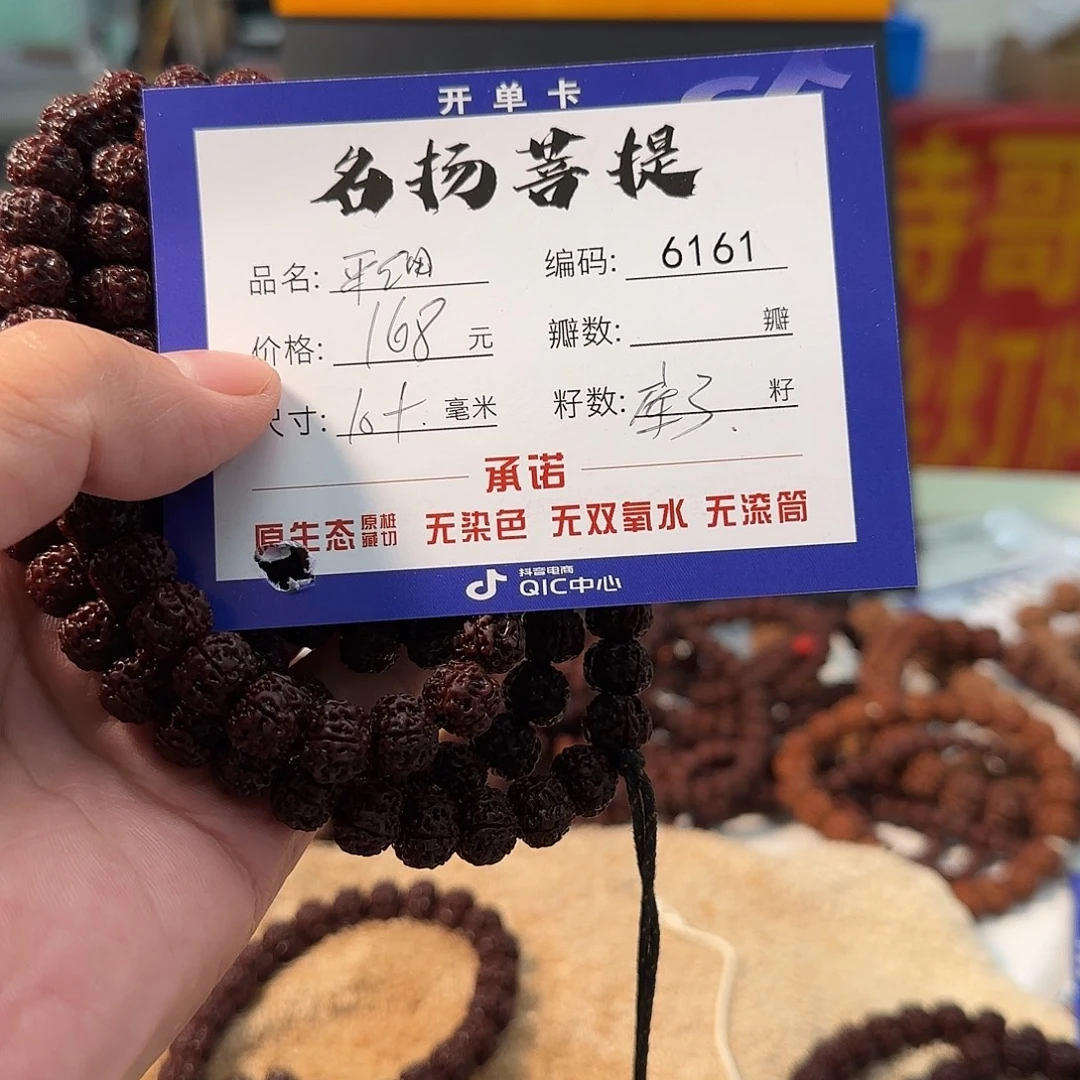 开单卡
名扬菩提
品名: 平细 编码: 6161
价格: 168 元 瓣数: 瓣
尺寸: 10+. 毫米 籽数: 籽
承诺
原生态 原桩藏切 无染色 无双氧水 无滚筒
抖音电商
QIC中心
哥
灯牌